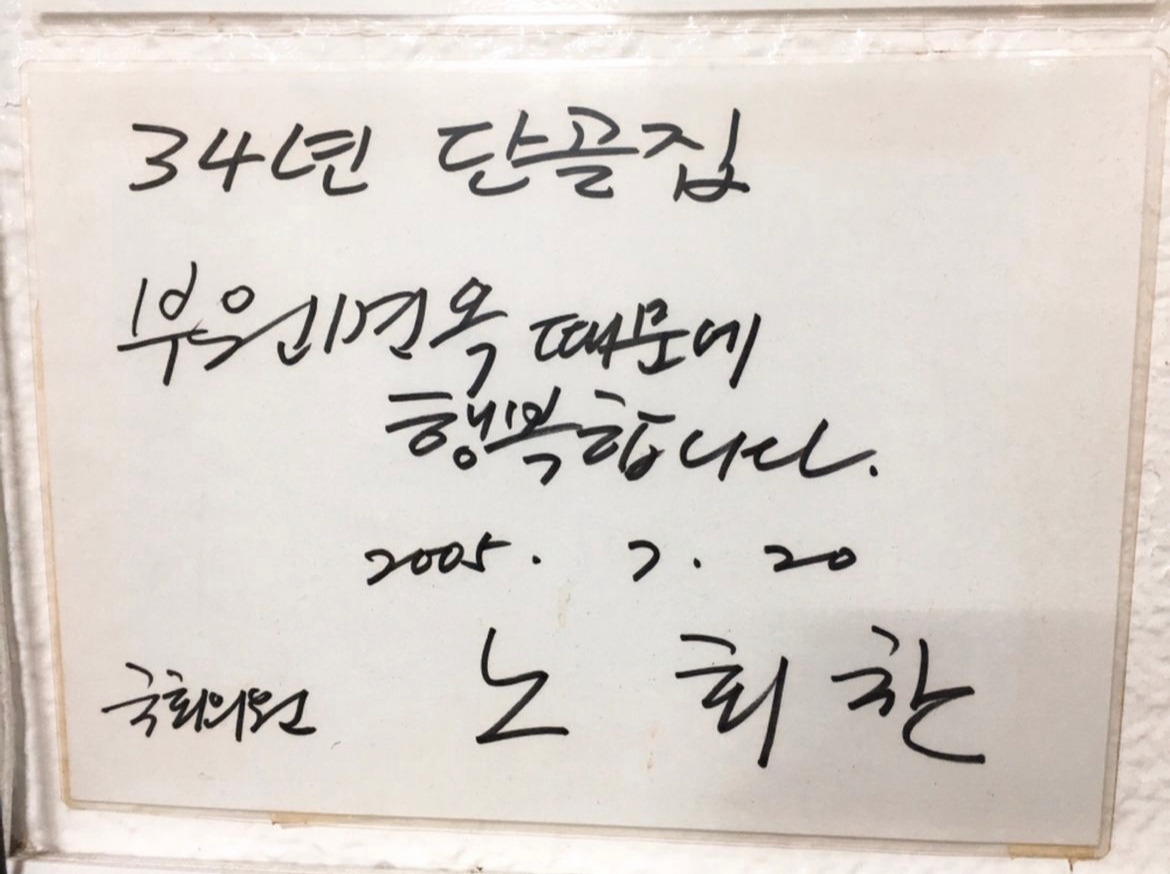 34년 단골집
부원면옥 때문에
행복합니다.
2005. 7. 20
국회의원 노회찬